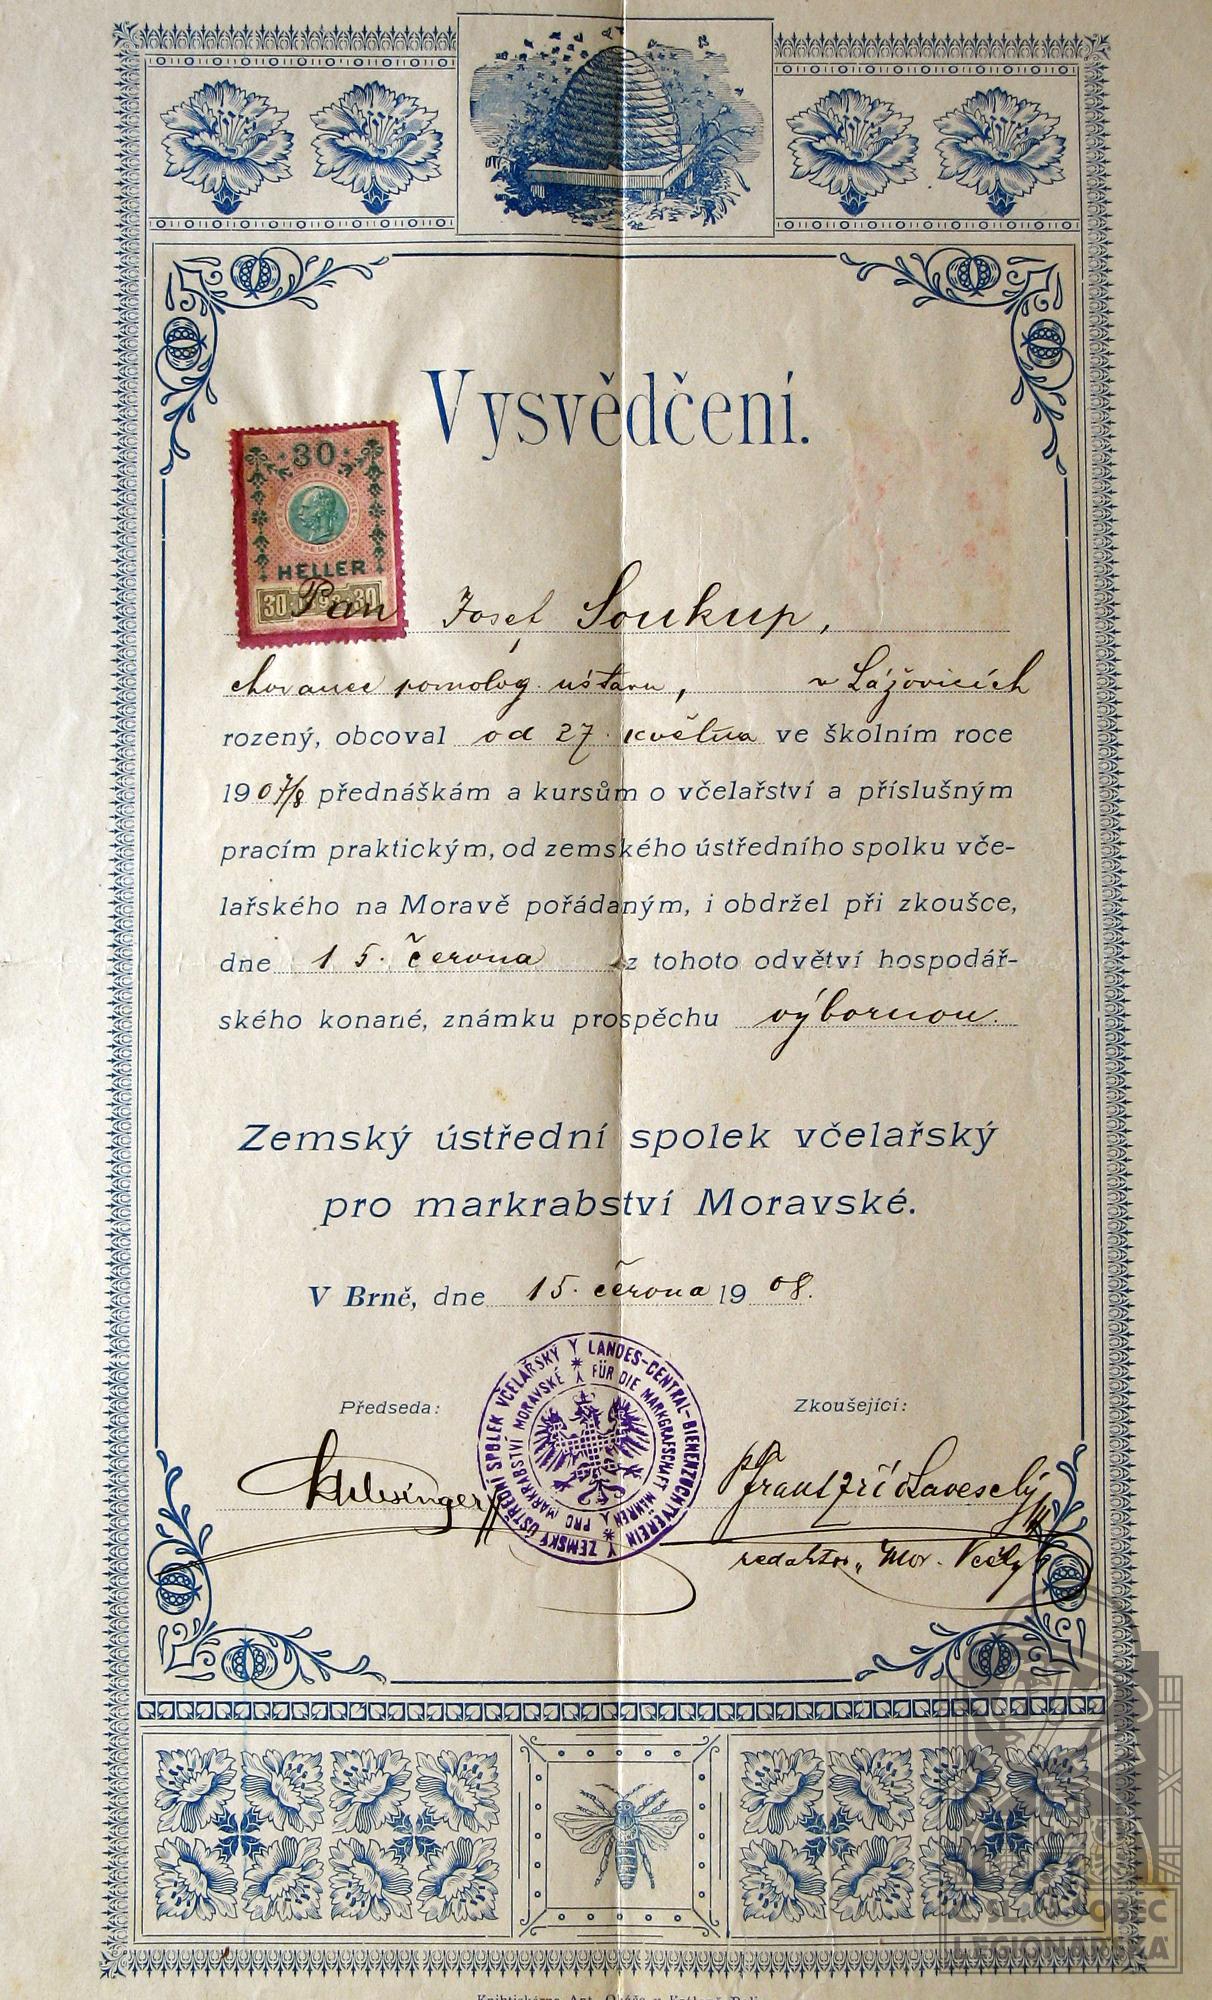 Vysvědčení.
30
HELLER
30 30
Pan Josef Soukup,
chovanec pomolog. ústavu, v Lážovicích
rozený, obcoval od 27. května ve školním roce
1907/8 přednáškám a kursům o včelařství a příslušným
pracím praktickým, od zemského ústředního spolku vče-
lařského na Moravě pořádaným, i obdržel při zkoušce,
dne 15. června z tohoto odvětví hospodář-
ského konané, známku prospěchu výbornou.
Zemský ústřední spolek včelařský
pro markrabství Moravské.
V Brně, dne 15. června 1908.
Předseda:
Zkoušející:
ZEMSKÝ ÚSTŘEDNÍ SPOLEK VČELAŘSKÝ
LANDES-CENTRAL-BIENENZUCHTVEREIN
PRO MARKRABSTVÍ MORAVSKÉ
FÜR DIE MARKGRAFSCHAFT MÄHREN
redaktor „Mor. Včely"
ČSL. OBEC
LEGIONÁŘSKÁ
Knihtiskárna Ant.